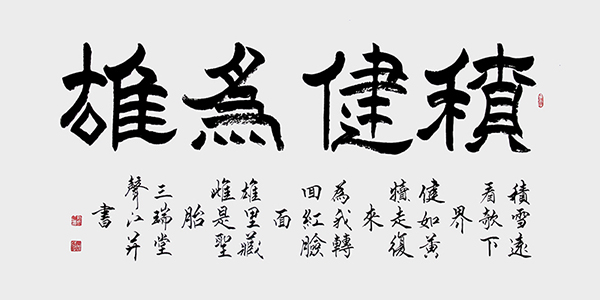 積健為雄
積雪遠
看歌下
界
健如黃
犢走復
來
為我轉
回紅臉
面
雄里藏
是聖
胎
三瑞堂
聲江并
書